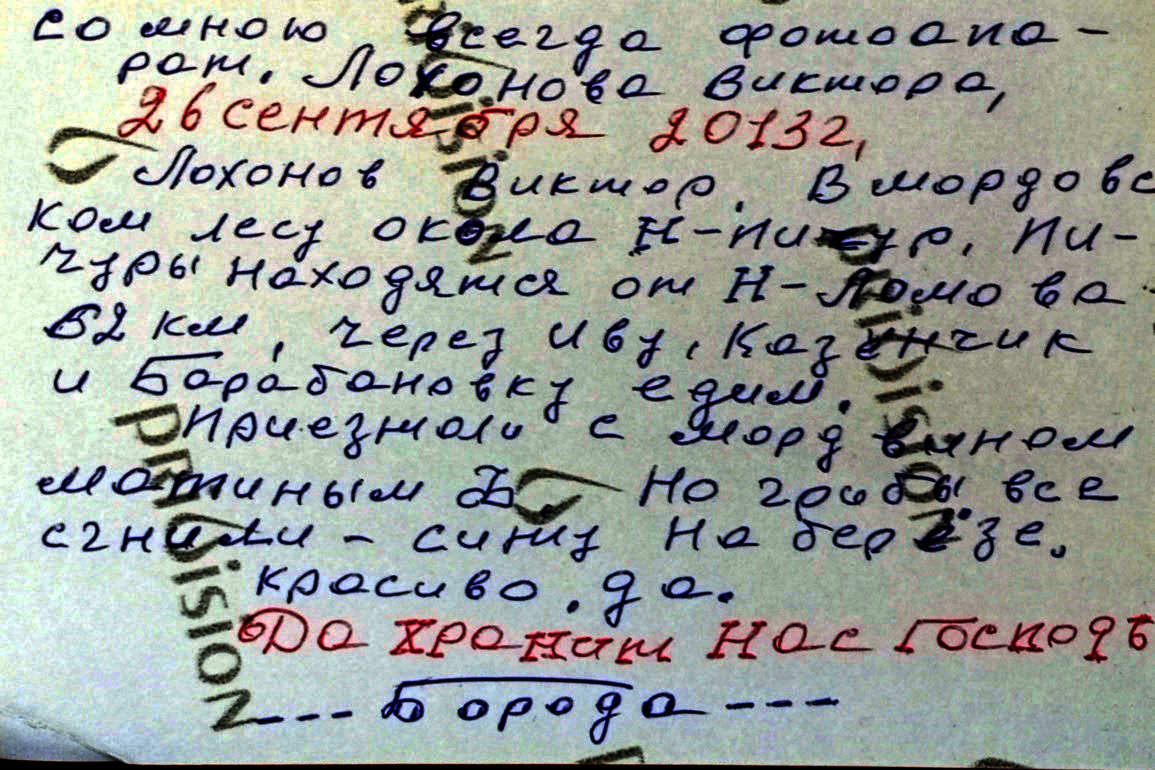 со мною всегда фотоапа-
рат. Лохонова Виктора,
26 сентября 2013г,
Лохонов Виктор. В мордовс
ком лесу окола Н-Пичур. Пи-
чуры находятся от Н-Ломова -
52 км, через Иву, Казенчик
и Барабановку едим.
Приезжали с Морд вином
мотиным Но грибы все
сгнили - сижу на берёзе.
красиво. да.
Да хранит нас Господь
--- Борода ---